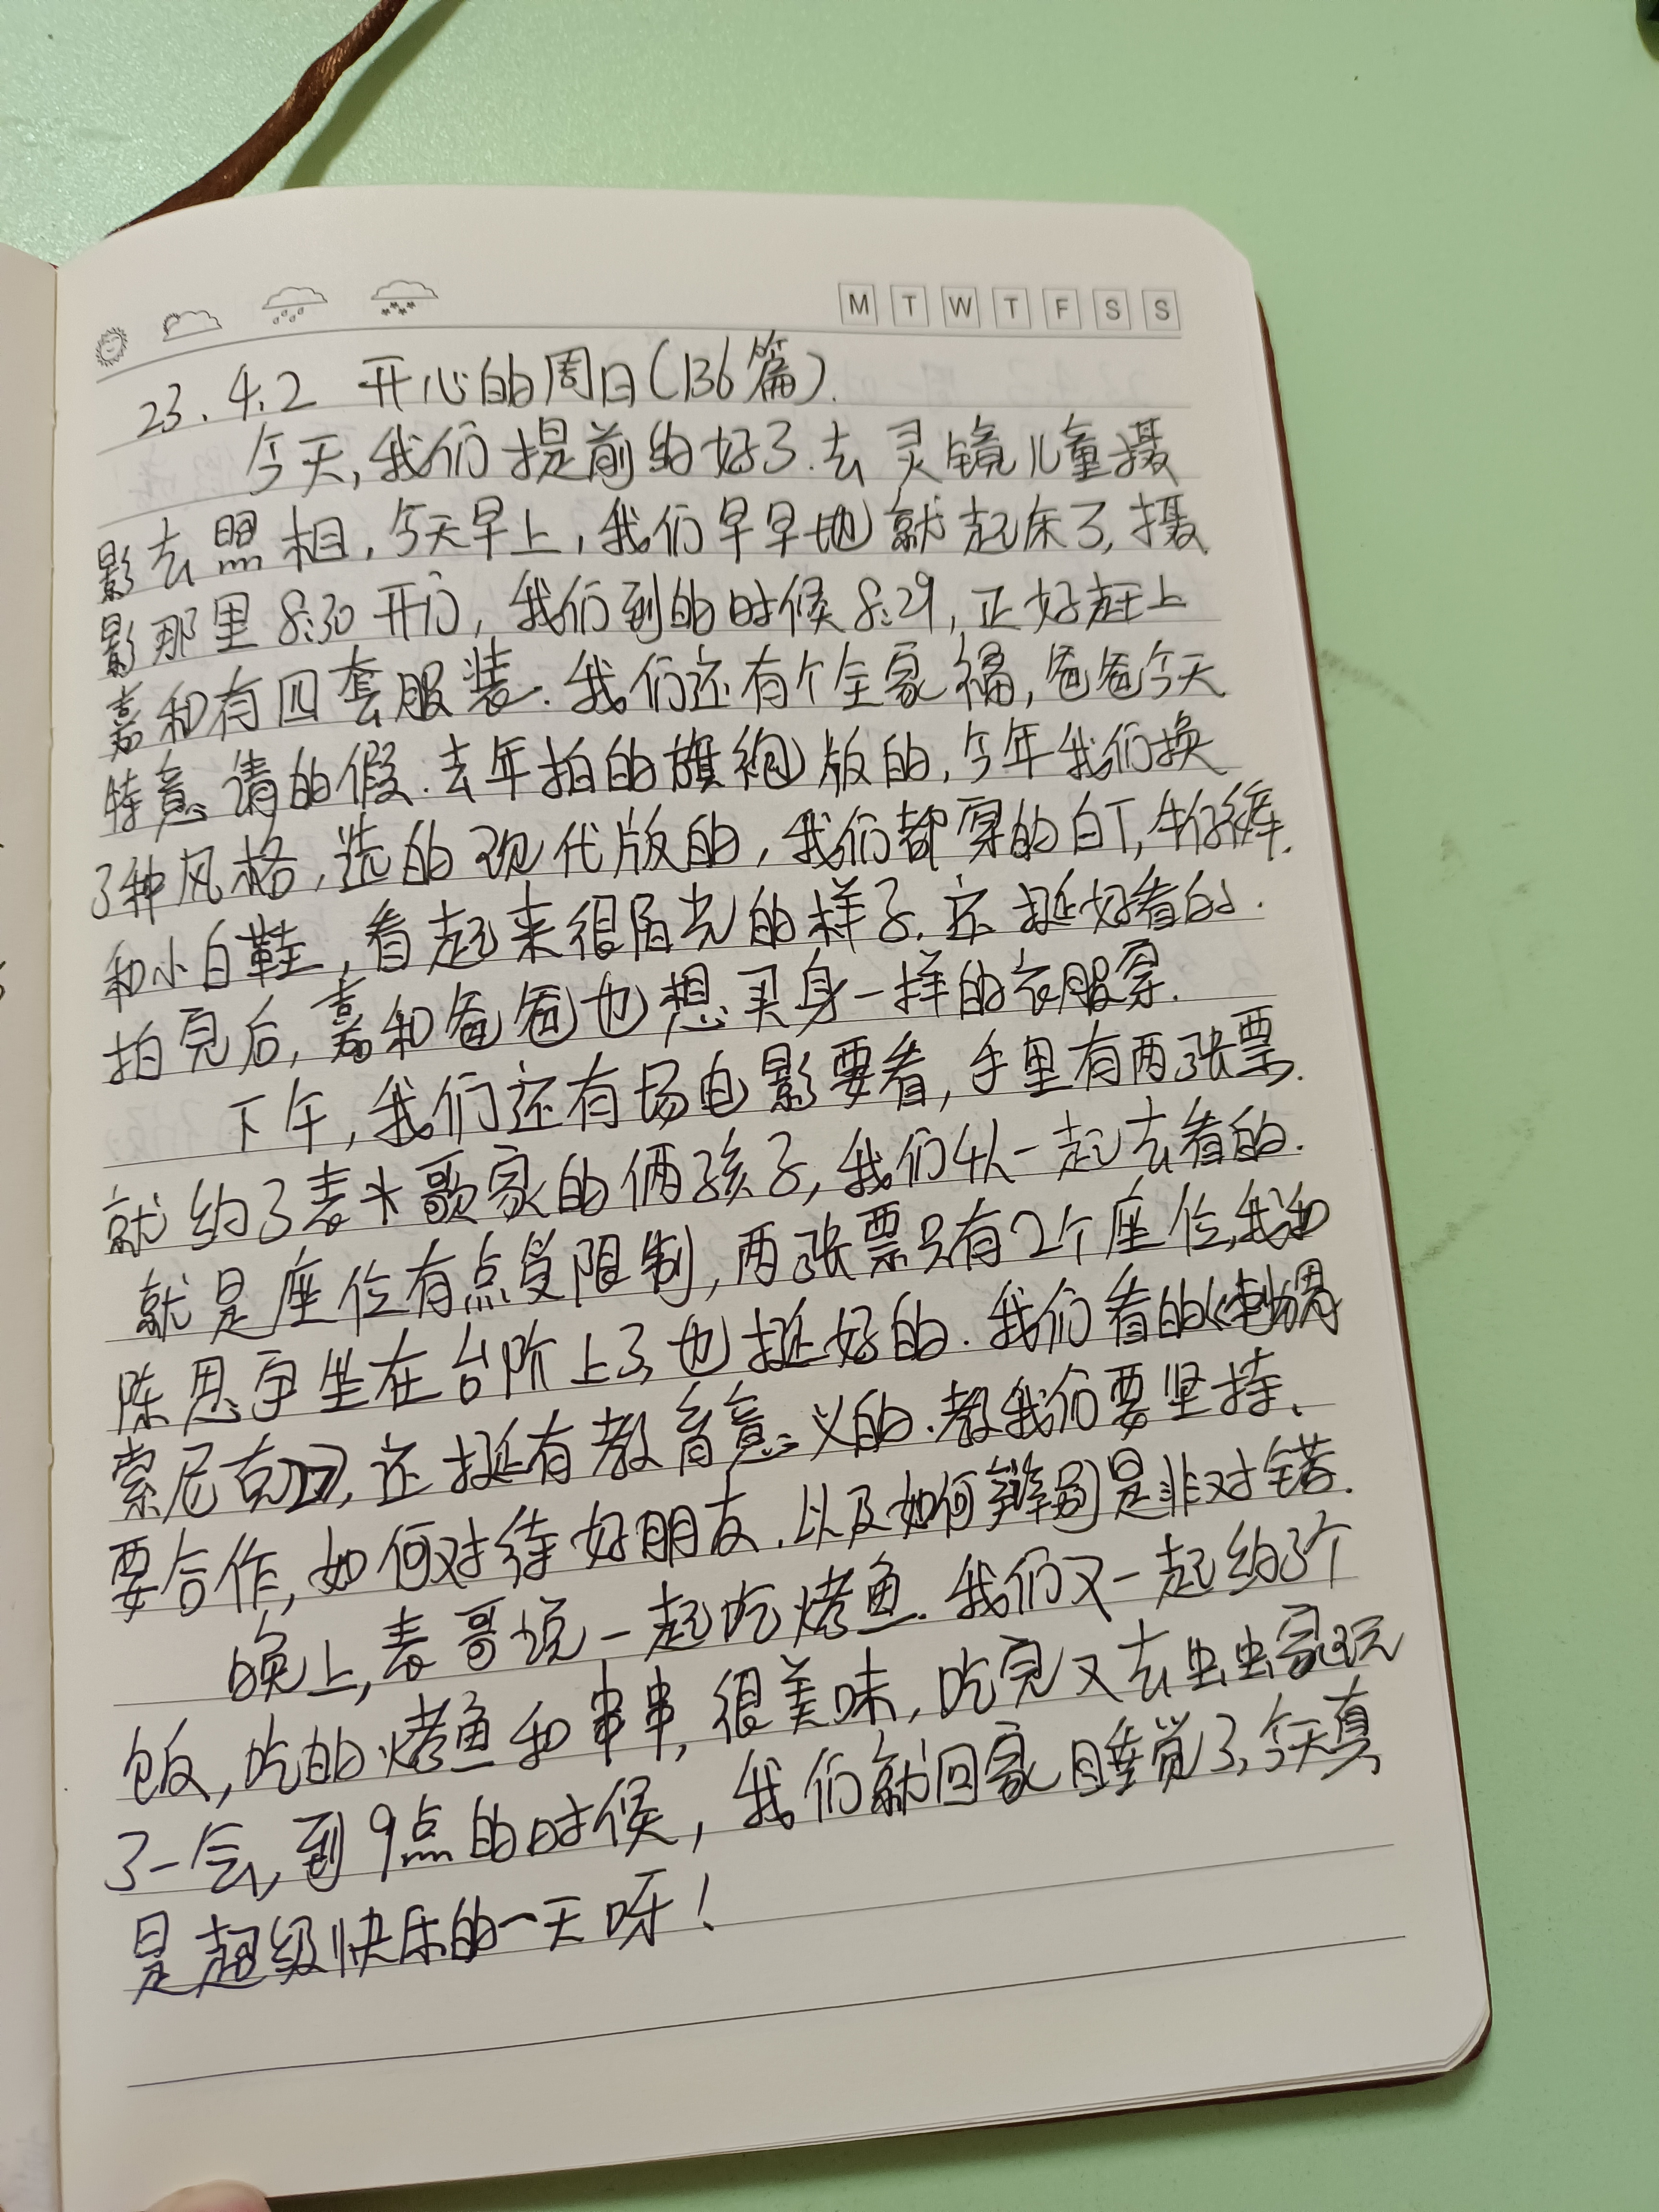 M T W T F S S
23.4.2 开心的周日(136篇).
今天,我们提前约好了.去灵镜儿童摄
影去照相,今天早上,我们早早地就起床了,摄
影那里8:30开门,我们到的时候8:29,正好赶上
嘉和有四套服装.我们还有个全家福,爸爸今天
特意请的假.去年拍的旗袍版的,今年我们换
了种风格,选的现代版的,我们都穿的白T,牛仔裤.
和小白鞋,看起来很阳光的样子.还挺好看的.
拍完后,嘉和爸爸也想买身一样的衣服穿.
下午,我们还有场电影要看,手里有两张票.
就约了表大歌家的俩孩子,我们4人一起去看的.
就是座位有点受限制,两张票只有2个座位,我和
陈思宇坐在台阶上了,也挺好的.我们看的《
索尼克》,还挺有教育意义的.教我们要坚持、
要合作,如何对待好朋友.以及如何辨别是非对错.
晚上,表哥说一起吃烤鱼.我们又一起约了个
饭,吃的烤鱼和串串,很美味,吃完又去虫虫家玩
了一会,到9点的时候,我们就回家睡觉了,今天真
是超级快乐的一天呀!